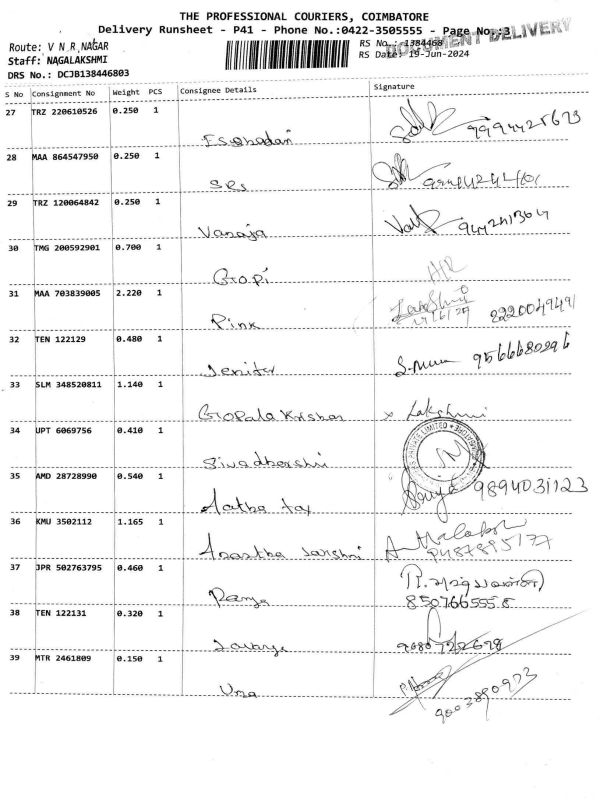 THE PROFESSIONAL COURIERS, COIMBATORE
Delivery Runsheet - P41 - Phone No.:0422-3505555 - Page No.:3
DOCUMENT DELIVERY
Route: V N R NAGAR
RS No.: 1384468
Staff: NAGALAKSHMI
RS Date: 19-Jun-2024
DRS No.: DCJB138446803
S No Consignment No Weight PCS Consignee Details Signature
27 TRZ 220610526 0.250 1
28 MAA 864547950 0.250 1
SRS
29 TRZ 120064842 0.250 1
Vanaja
30 TMG 200592901 0.700 1
Gopi
31 MAA 703839005 2.220 1
Pink
32 TEN 122129 0.480 1
Jenifer 9566680296
33 SLM 348520811 1.140 1
Gopala Krishnan x Lakshmi
34 UPT 6069756 0.410 1
PRIVATE LIMITED
Sivadharshi
35 AMD 28728990 0.540 1
9894031123
36 KMU 3502112 1.165 1
37 JPR 502763795 0.460 1
Ramya 8507665558
38 TEN 122131 0.320 1
39 MTR 2461809 0.150 1
Uma 9003890923